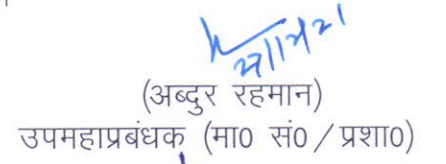 (अब्दुर रहमान)
उपमहाप्रबंधक (मा0 सं0 / प्रशा0)